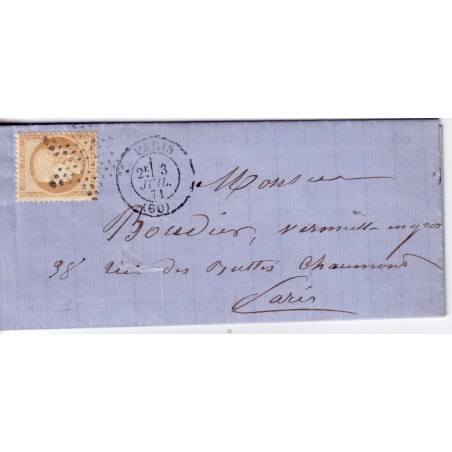 PARIS
2E 3
JUIL.
71
(60)
Monsieur
Boudier, vermicelle en gros
38 rue des Buttes Chaumont
Paris